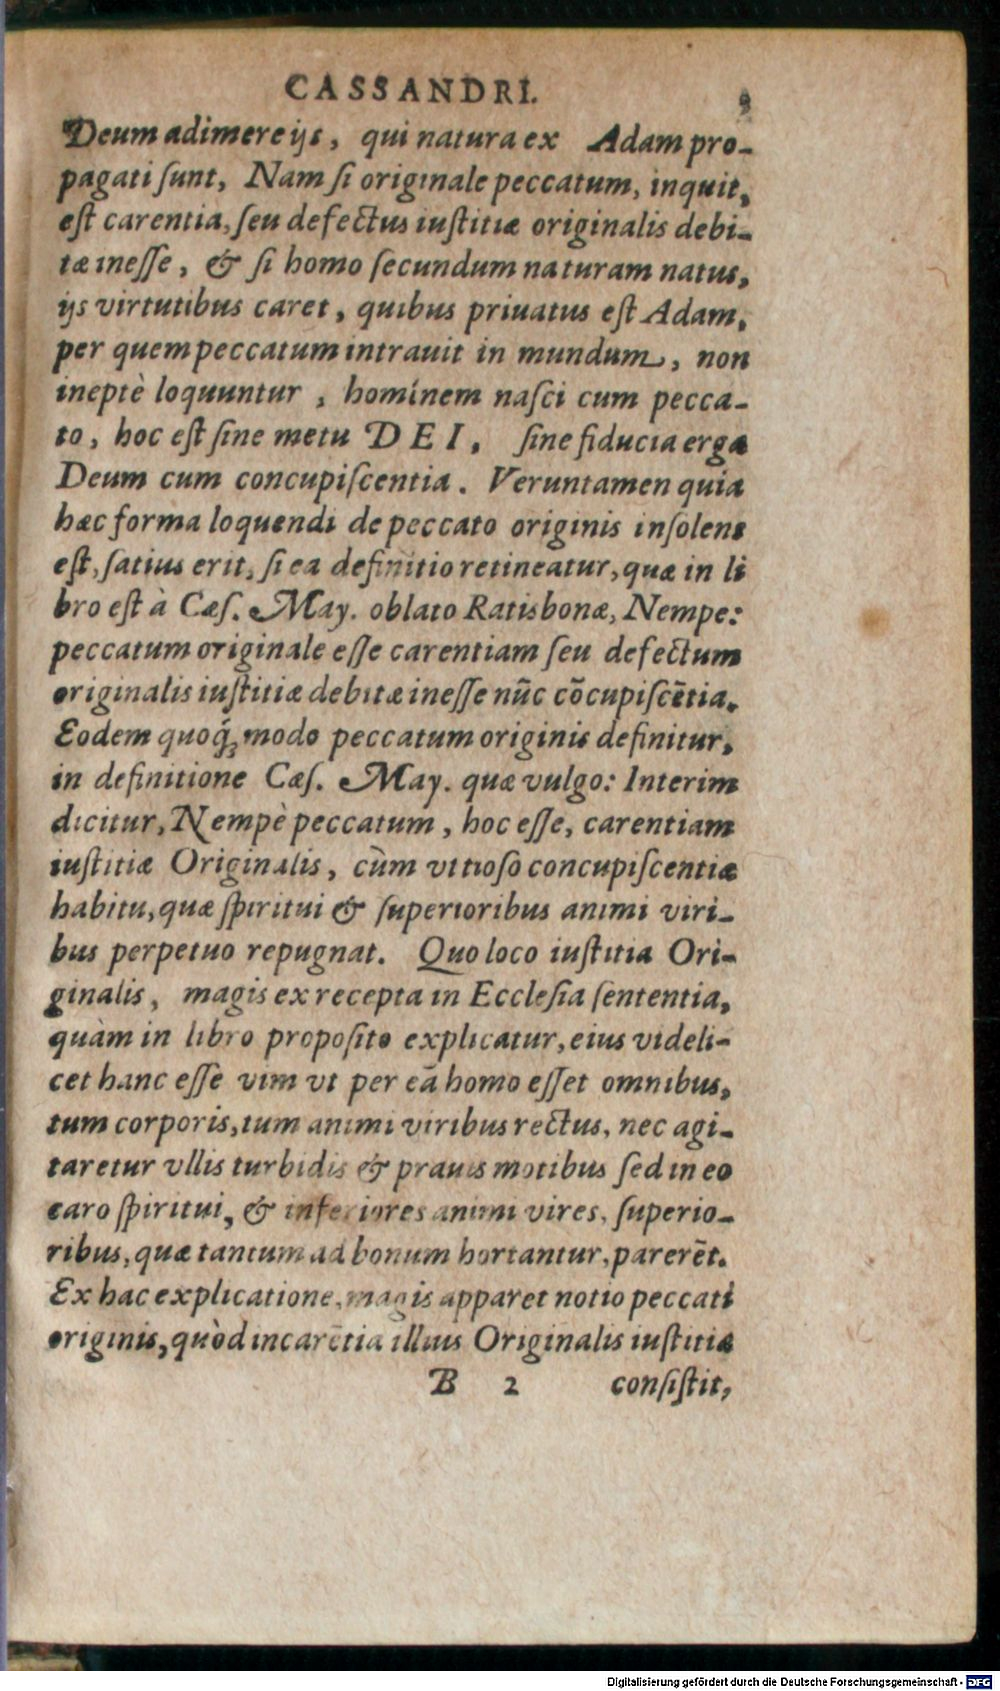 CASSANDRI. 9
Deum adimere ijs, qui natura ex Adam pro-
pagati ſunt, Nam ſi originale peccatum, inquit,
eſt carentia, ſeu defectus iuſtitiæ originalis debi-
tæ ineſſe, & ſi homo ſecundum naturam natus,
ijs virtutibus caret, quibus priuatus eſt Adam,
per quem peccatum intrauit in mundum, non
ineptè loquuntur, homínem naſci cum pecca-
to, hoc eſt ſine metu DEI, ſine fiducia erga
Deum cum concupiſcentia. Veruntamen quia
hæc forma loquendi de peccato originis inſolens
eſt, ſatius erit, ſi ea definitio retineatur, quæ in li
bro eſt à Cæſ. May. oblato Ratisbonæ, Nempe:
peccatum originale eſſe carentiam ſeu defectum
originalis iuſtitiæ debitæ ineſſe nũc cõcupiſcẽtia.
Eodem quoq́ꝫ modo peccatum originis definitur,
in definitione Cæſ. May. quæ vulgo: Interim
dicitur, Nempè peccatum, hoc eſſe, carentiam
iuſtitiæ Originalis, cùm vitioſo concupiſcentiæ
habitu, quæ ſpiritui & ſuperioribus animi viri-
bus perpetuo repugnat. Quo loco iuſtitia Ori-
ginalis, magis ex recepta in Eccleſia ſententia,
quàm in libro propoſito explicatur, eius videli-
cet hanc eſſe vim vt per eã homo eſſet omnibus,
tum corporis, tum animi viribus rectus, nec agi-
taretur vllis turbidis & prauis motibus ſed in eo
caro ſpiritui, & inferiores animi vires, ſuperio-
ribus, quæ tantum ad bonum hortantur, parerẽt.
Ex hac explicatione, magis apparet notio peccati
originis, quòd in carẽtia illius Originalis iuſtitiæ
B 2 conſiſtit,
Digitalisierung gefördert durch die Deutsche Forschungsgemeinschaft - DFG